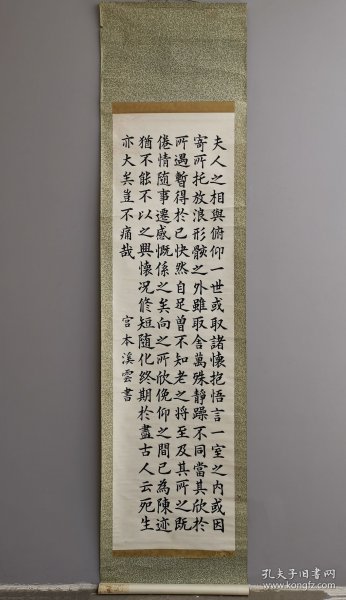 夫人之相與俯仰一世或取諸懷抱悟言一室之内或因
寄所托放浪形骸之外雖取舎萬殊靜躁不同當其欣於
所遇暫得於己快然自足曾不知老之将至及其所之既
倦情随事遷感慨係之矣向之所欣俛仰之間已為陳迹
猶不能不以之興懷况脩短随化終期於盡古人云死生
亦大矣豈不痛哉
宮本溪雲書
孔夫子旧书网
www.kongfz.com